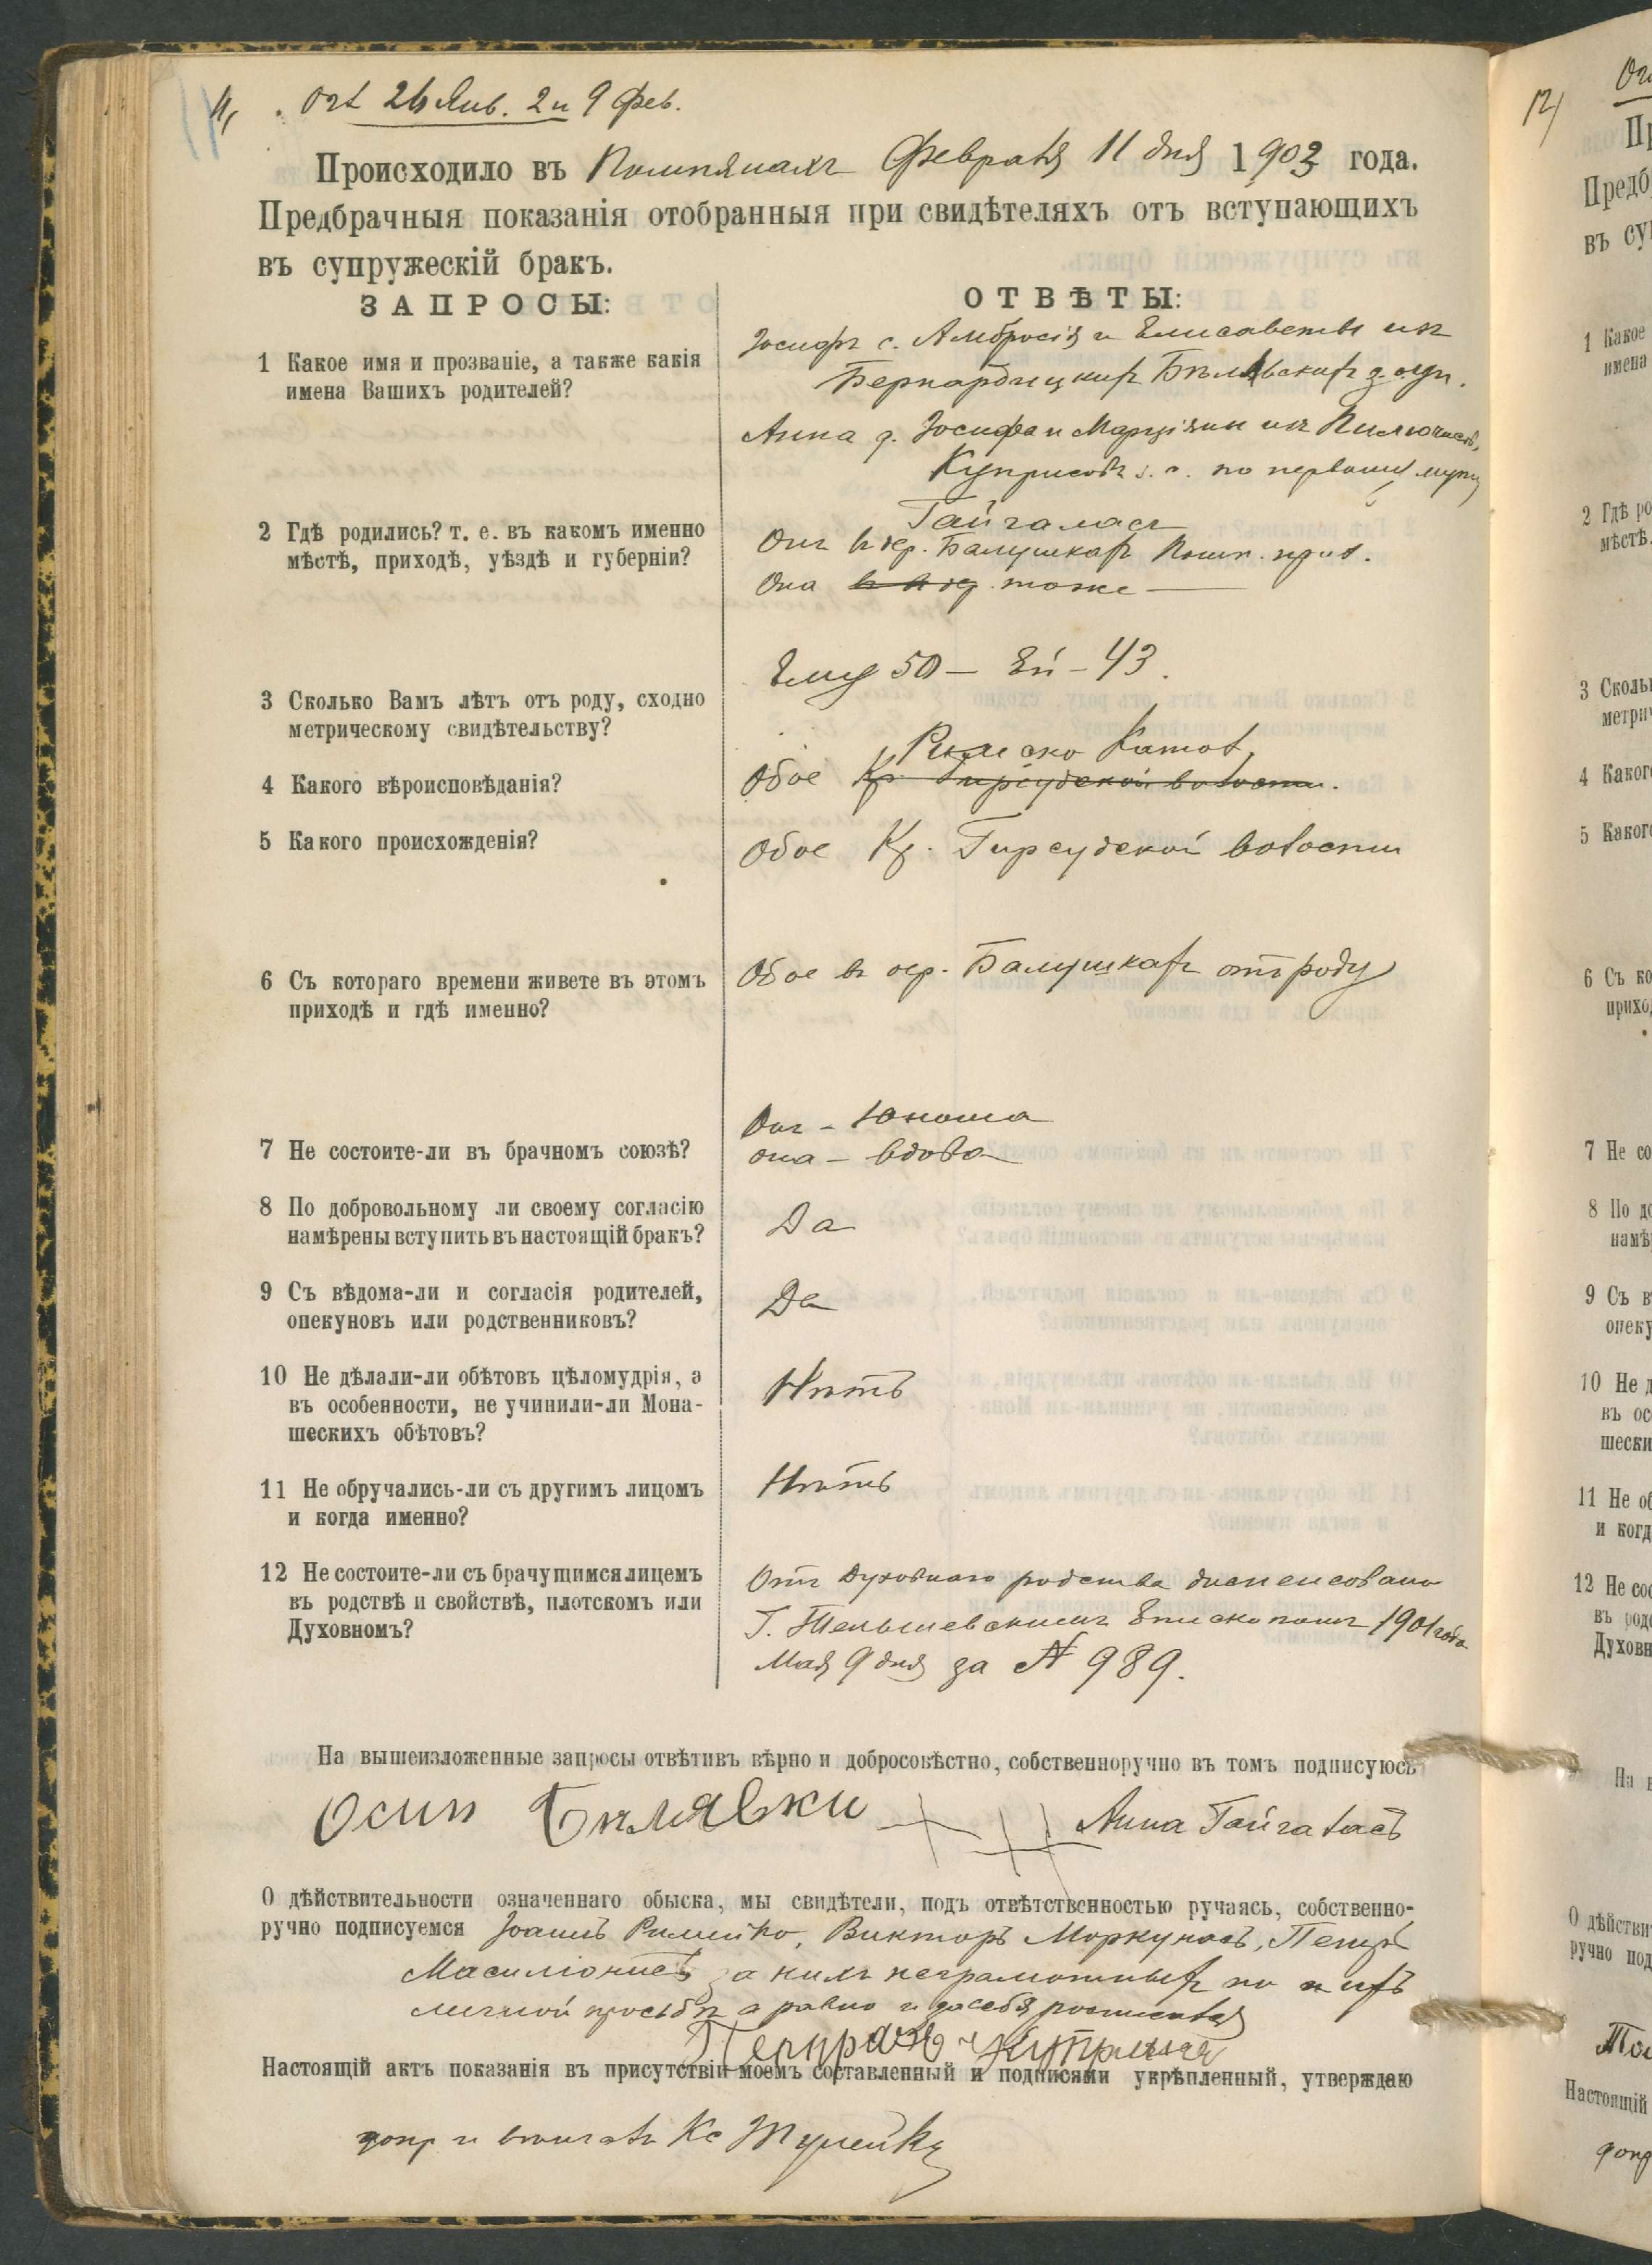 11, Огл 26 Янв. 2 и 9 Фев.
Происходило въ Помпянахъ Февраля 11 дня 1903 года.
Предбрачныя показанія отобранныя при свидѣтеляхъ отъ вступающихъ
въ супружескій бракъ.
ЗАПРОСЫ:
ОТВѢТЫ:
1 Какое имя и прозваніе, а также какія
имена Вашихъ родителей?
Іосифъ с. Амбросія и Елисаветы изъ
Бернардицкихъ
Анна д. Іосифа и Марціяны изъ
по первому мужу
Гайгаласъ
2 Гдѣ родились? т. е. въ какомъ именно
мѣстѣ, приходѣ, уѣздѣ и губерніи?
Онъ въ Балушкахъ Помп. прих.
Она тоже
3 Сколько Вамъ лѣтъ отъ роду, сходно
метрическому свидѣтельству?
Ему 50 — Ей — 43.
4 Какого вѣроисповѣданія?
Римско Катол.
Обое Кр. Гирсудской волости.
5 Какого происхожденія?
Обое Кр. Гирсудской волости
6 Съ котораго времени живете въ этомъ
приходѣ и гдѣ именно?
Обое въ Балушкахъ отъ роду
7 Не состоите-ли въ брачномъ союзѣ?
Онъ — Юноша
она — вдова
8 По добровольному ли своему согласію
намѣрены вступить въ настоящій бракъ?
Да
9 Съ вѣдома-ли и согласія родителей,
опекуновъ или родственниковъ?
Да
10 Не дѣлали-ли обѣтовъ цѣломудрія, а
въ особенности, не учинили-ли Мона-
шескихъ обѣтовъ?
Нѣтъ
11 Не обручались-ли съ другимъ лицомъ
и когда именно?
Нѣтъ
12 Не состоите-ли съ брачущимся лицемъ
въ родствѣ и свойствѣ, плотскомъ или
Духовномъ?
Отъ Духовнаго родства диспенсовано
Г. Тельшевскимъ Епископомъ 1901 года
Мая 9 дня за № 989.
На вышеизложенные запросы отвѣтивъ вѣрно и добросовѣстно, собственноручно въ томъ подписуюсь
Осип Билявки +++ Анна Гайгаласъ
О дѣйствительности означеннаго обыска, мы свидѣтели, подъ отвѣтственностью ручаясь, собственно-
ручно подписуемся Іоаннъ Римейко, Викторъ Моркунасъ, Петръ
Масиліонисъ за нихъ неграмотныхъ по ихъ
личной просьбѣ а равно и за себя росписался
Настоящій актъ показанія въ присутствіи моемъ составленный и подписями укрѣпленный, утверждаю